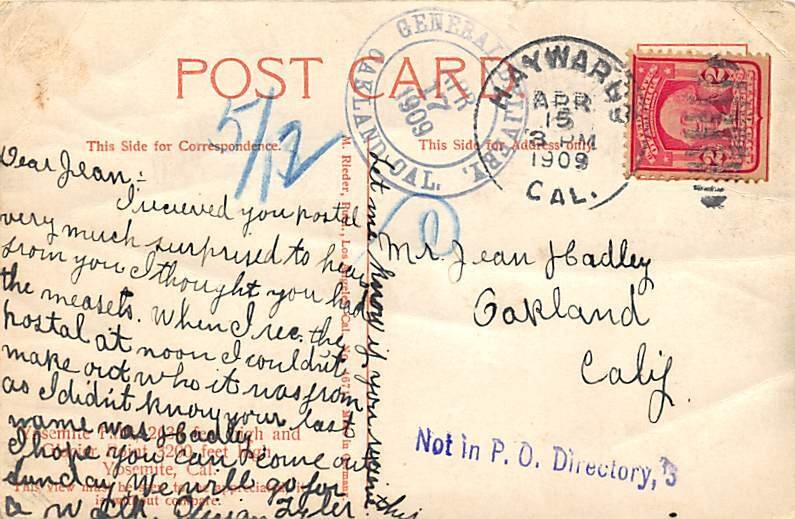 POST CARD
GENERAL DELIVERY.
APR
21
1909
OAKLAND, CAL.
HAYWARDS
APR
15
3 PM
1909
CAL.
5/12
10
This Side for Correspondence.
This Side for Address only.
Dear Jean:
I recieved you postal
very much surprised to hear
from you I thought you had
the measels. When I rec. the
postal at noon I couldnt
make out who it was from
as I didnt know your last
name was Hadley
I hope you can come out
Sunday we will go for
a walk. Tyler
Let me know if you recieve this
Mr. Jean Hadley
Oakland
Calif
Not in P. O. Directory,
M. Rieder, Publ., Los Angeles, Cal. No. Made in Germany.
Yosemite feet high and
Glacier Point 3200 feet high
Yosemite, Cal.
This view must be seen to be appreciated. It
is without compare.